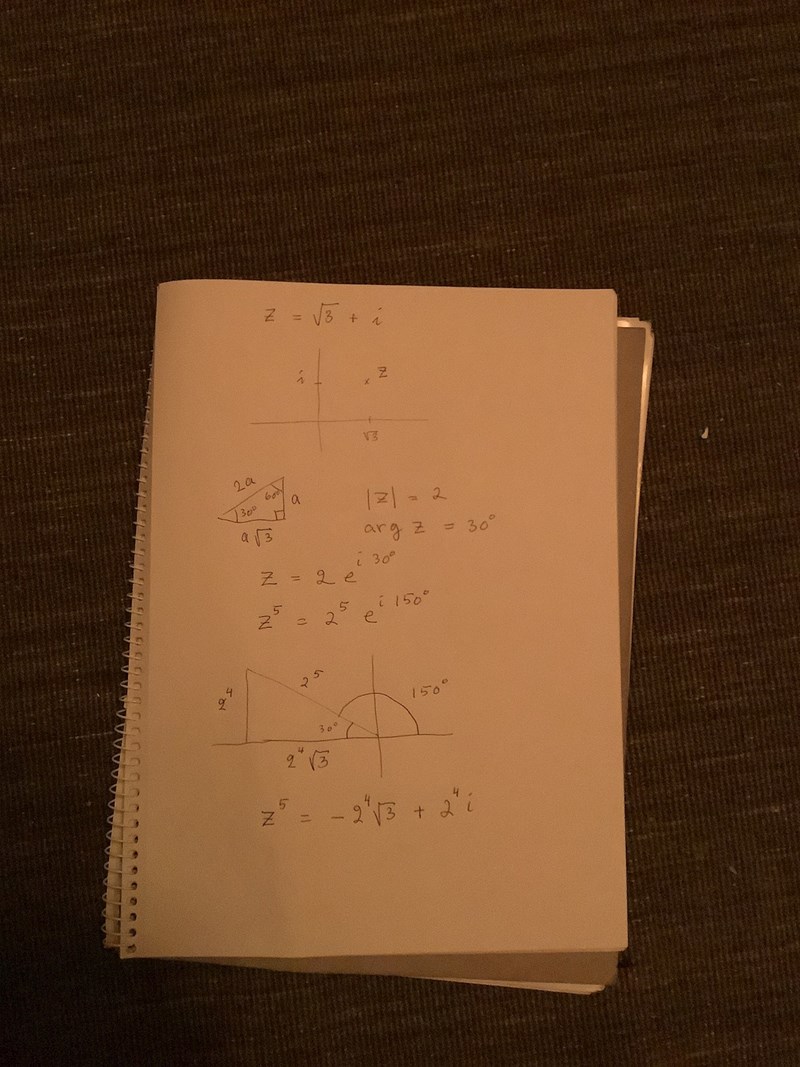 z = √3 + i
i
z
√3
2a
60°
30°
a
a√3
|z| = 2
arg z = 30°
z = 2 e^{i 30°}
z⁵ = 2⁵ e^{i 150°}
2⁴
2⁵
150°
30°
2⁴√3
z⁵ = - 2⁴√3 + 2⁴ i